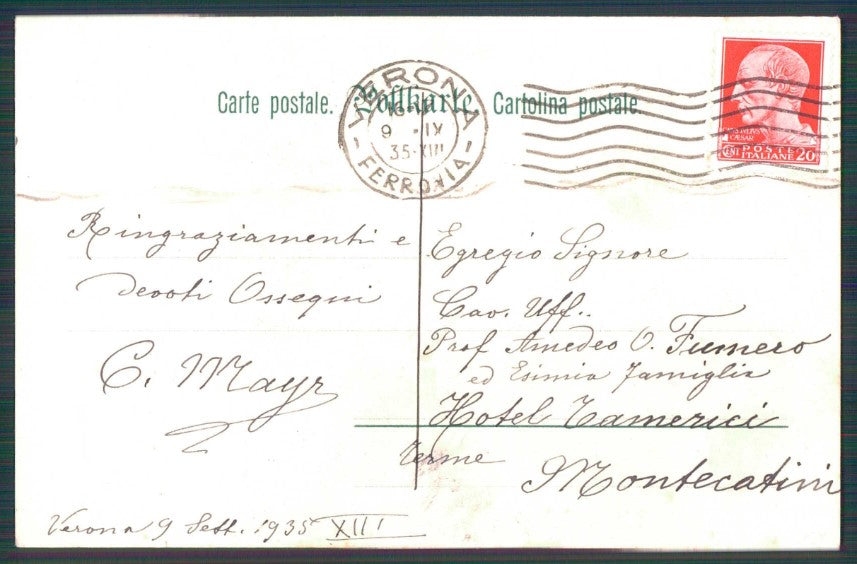 Carte postale. Postkarte. Cartolina postale.
VERONA
9 - IX
35-XIII
- FERROVIA -
CAESAR
CENT POSTE ITALIANE 20
Ringraziamenti e
devoti Ossequi
C. Mayr
Verona 9 Sett. 1935 XIII
Egregio Signore
Cav. Uff.
Prof Amedeo O. Fumero
ed Esimia Famiglia
Hotel Tamerici
Terme
Montecatini